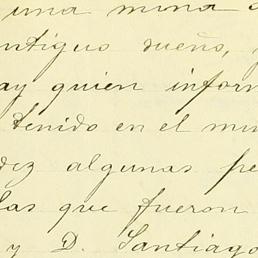 una mina
antiguo sueño,
ay quien inform
tenido en el mu
dez algunas pe
las que fueron
y D. Santiago